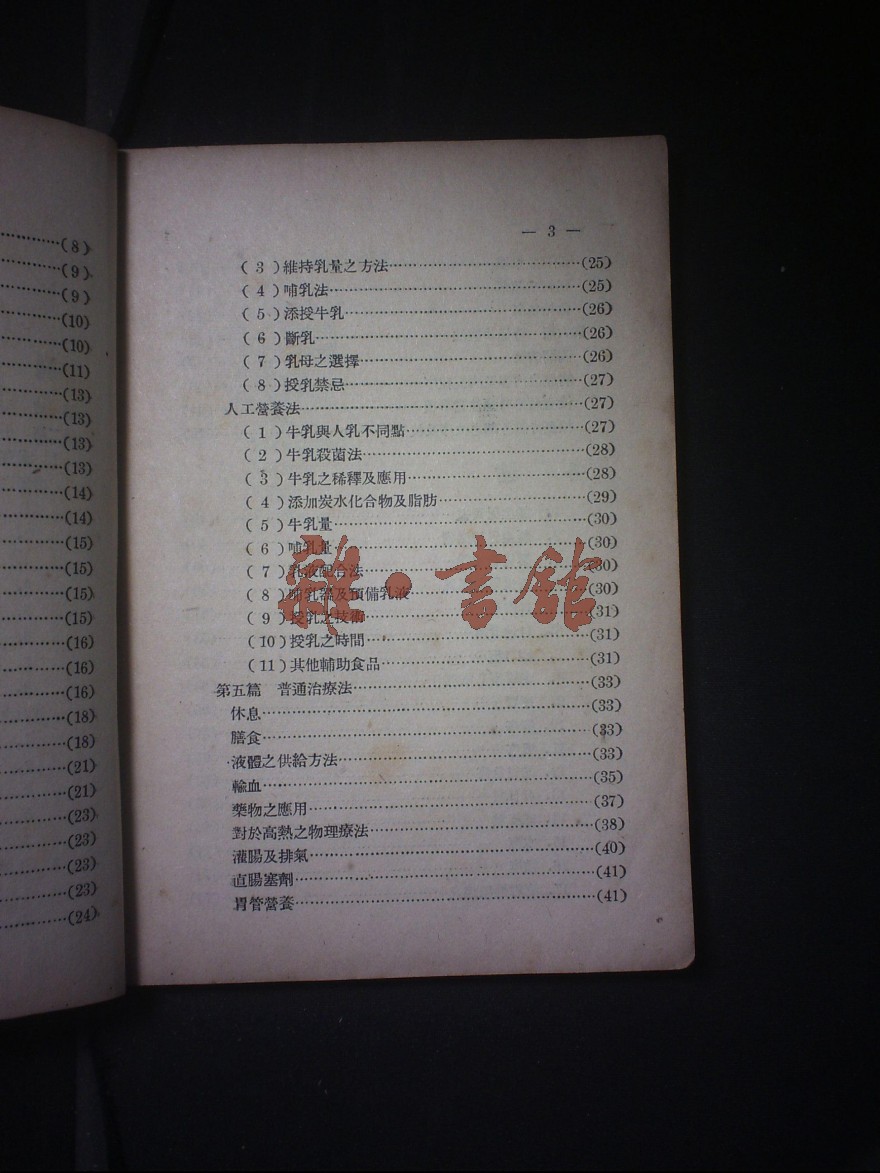 ……(8)
……(9)
……(9)
……(10)
……(10)
……(11)
……(13)
……(13)
……(13)
……(13)
……(14)
……(14)
……(15)
……(15)
……(15)
……(15)
……(16)
……(16)
……(16)
……(18)
……(18)
……(21)
……(21)
……(23)
……(23)
……(23)
……(23)
……(24)
— 3 —
(3)維持乳量之方法……(25)
(4)哺乳法……(25)
(5)添授牛乳……(26)
(6)斷乳……(26)
(7)乳母之選擇……(26)
(8)授乳禁忌……(27)
人工營養法……(27)
(1)牛乳與人乳不同點……(27)
(2)牛乳殺菌法……(28)
(3)牛乳之稀釋及應用……(28)
(4)添加炭水化合物及脂肪……(29)
(5)牛乳量……(30)
(6)哺乳量……(30)
(7)乳液配合法……(30)
(8)哺乳器及預備乳液……(30)
(9)授乳之技術……(31)
(10)授乳之時間……(31)
(11)其他輔助食品……(31)
第五篇 普通治療法……(33)
休息……(33)
膳食……(33)
液體之供給方法……(33)
輸血……(35)
藥物之應用……(37)
對於高熱之物理療法……(38)
灌腸及排氣……(40)
直腸塞劑……(41)
胃管營養……(41)
雜·書館